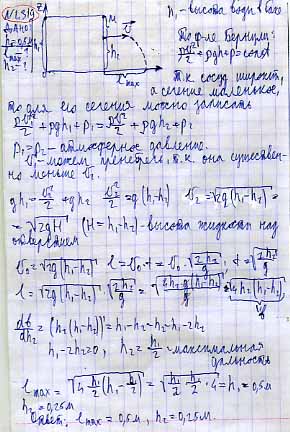 N1.319
Дано
h₁=0,5м
l max - ?
h₂ - ?
Z
M
V
h₁
h₂
l max
h₁ - высота воды в баке
По ф-ле Бернулли:
ρV²/2 + ρgh + p = const
Т.к. сосуд широкий,
а сечение маленькое,
то для его сечения можно записать
ρV₁²/2 + ρgh₁ + p₁ = ρV₂²/2 + ρgh₂ + p₂
p₁ = p₂ - атмосферное давление.
V₁ - можем пренебречь, т.к. она существен-
но меньше V₂.
gh₁ = V₂²/2 + gh₂ V₂²/2 = g(h₁-h₂) V₂ = √2g(h₁-h₂) =
= √2gH (H = h₁-h₂) - высота жидкости над
отверстием
V₀ = √2g(h₁-h₂) l = V₀·t = V₀·√2h₂/g, t = √2h₂/g
l = √2g(h₁-h₂) · √2h₂/g = √4h₂g(h₁-h₂)/g = √4h₂(h₁-h₂)
db/dh₂ = (h₂(h₁-h₂))' = h₁-h₂-h₂ = h₁-2h₂
h₁-2h₂=0, h₂ = h₁/2 - максимальная
дальность
l max = √4 h₁/2 (h₁ - h₁/2) = √h₁/2 · h₁/2 · 4 = h₁ = 0,5м
h₂ = 0,25м
Ответ: l max = 0,5м, h₂ = 0,25м.